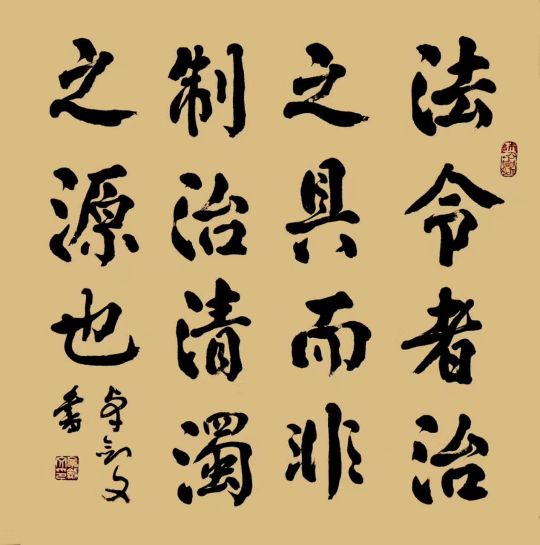 法令者治
之具而非
制治清濁
之源也
文
書